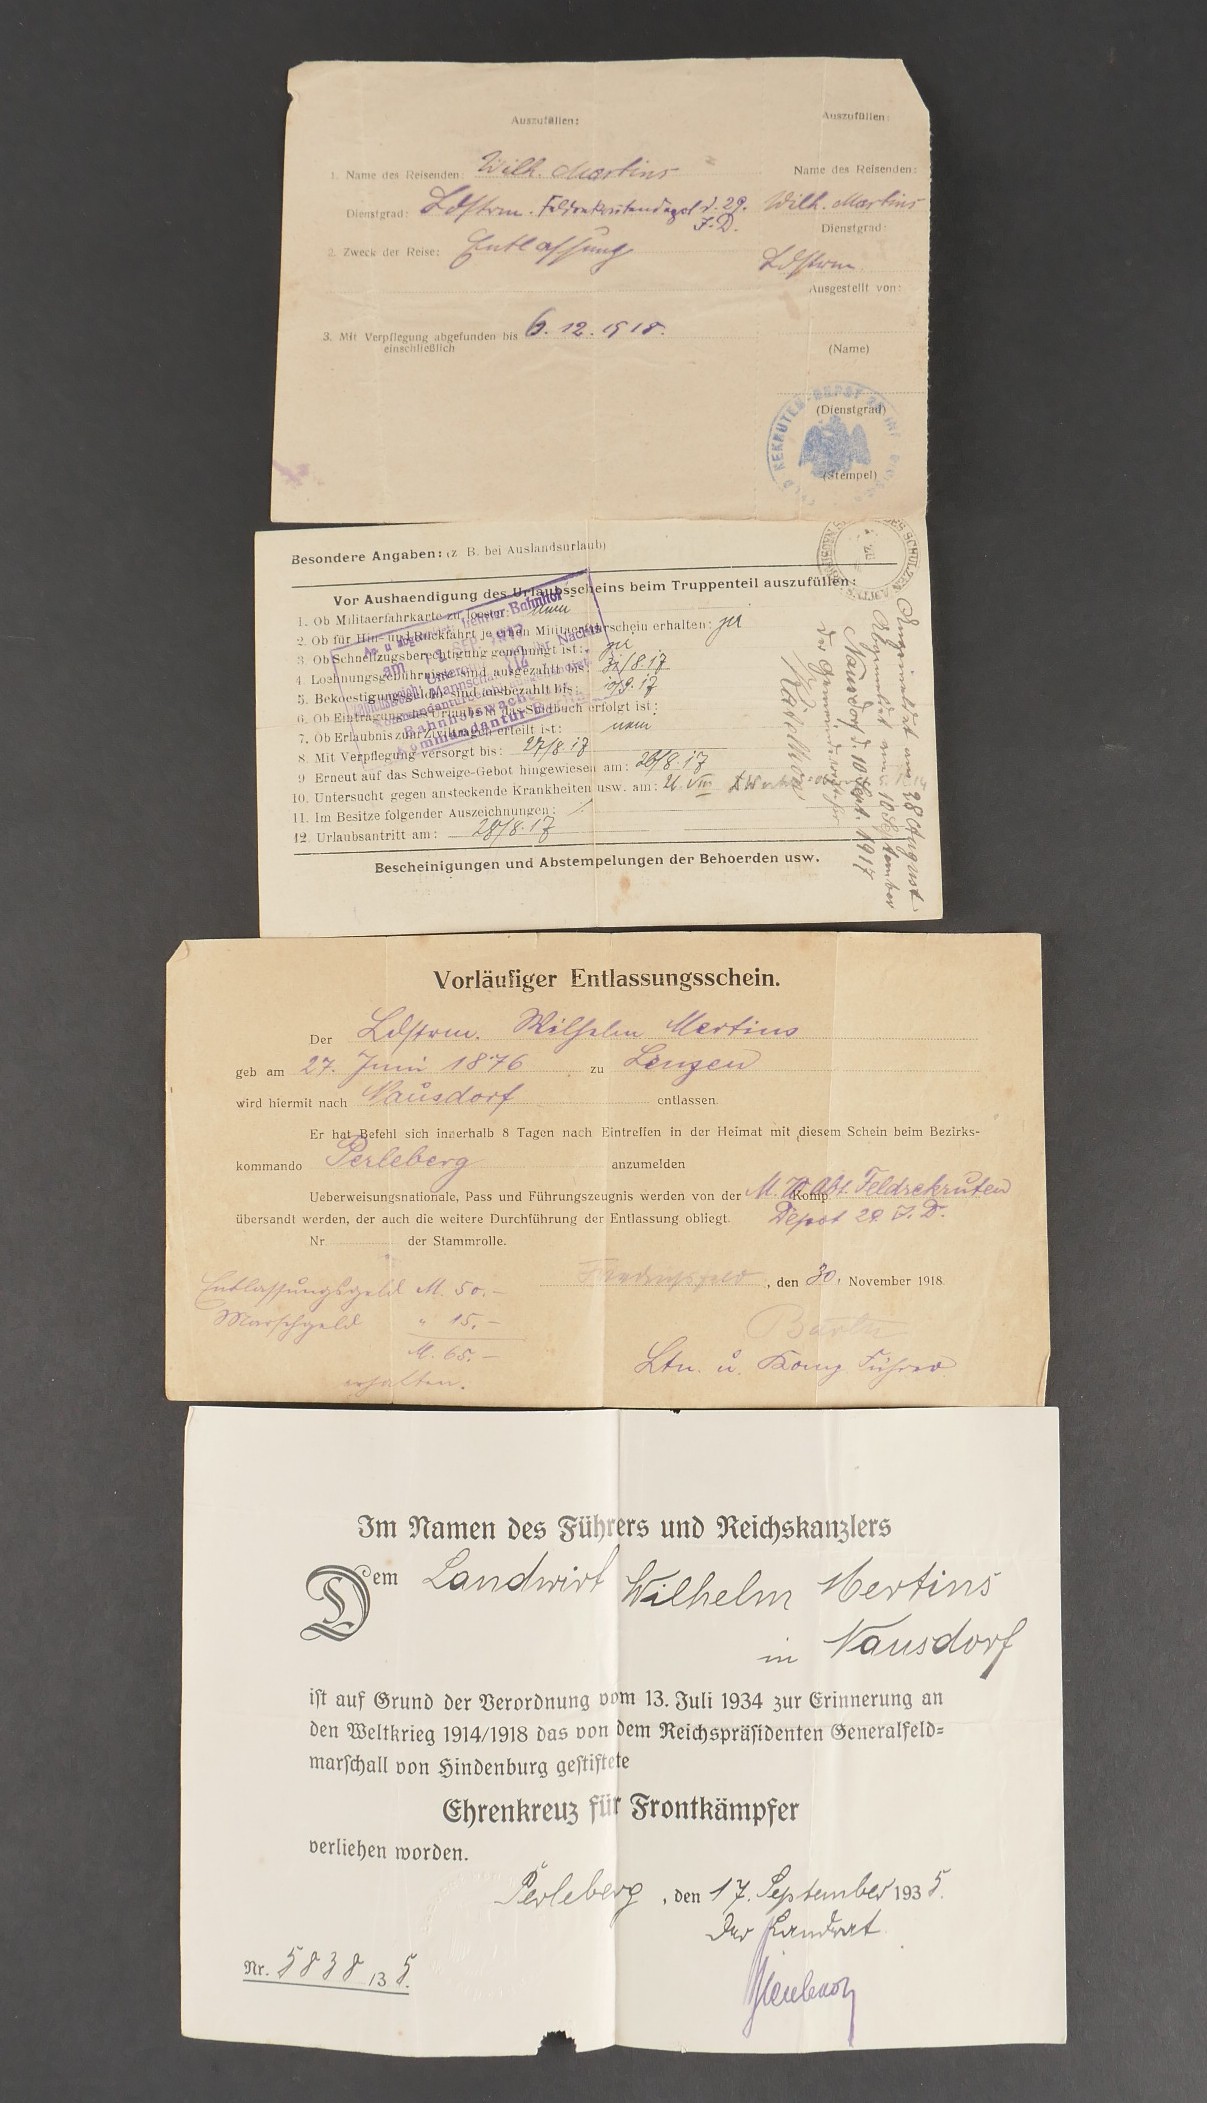 Auszufüllen:
Auszufüllen:
1. Name des Reisenden: Wilh. Mertins
Name des Reisenden:
Dienstgrad: Ldstrm. Feldrekrutendepot d. 29.
Wilh. Mertins
I.D.
Dienstgrad:
2. Zweck der Reise: Entlassung
Ldstrm
Ausgestellt von:
3. Mit Verpflegung abgefunden bis 6. 12. 1918.
einschließlich
(Name)
(Dienstgrad)
FELD REKRUTEN-DEPOT 29 INF
(Stempel)
Besondere Angaben: (z B. bei Auslandsurlaub)
Vor Aushaendigung des Urlaubsscheins beim Truppenteil auszufüllen:
1. Ob Militaerfahrkarte zu loesten: nein
2. Ob für Hin- und Rückfahrt je einen Militaerfahrschein erhalten: ja
3 Ob Schnellzugsberechtigung genehmigt ist: ja
4. Loehnungsgebührnisse sind ausgezahlt bis: 31/8.17
5. Bekoestigungsgelder sind ausbezahlt bis: 10/9.17
6. Ob Eintragung des Urlaubs in das Soldbuch erfolgt ist:
7. Ob Erlaubnis zum Ziviltragen erteilt ist: nein
8. Mit Verpflegung versorgt bis: 27/8.17
9 Erneut auf das Schweige-Gebot hingewiesen am: 26/8.17
10. Untersucht gegen ansteckende Krankheiten usw. am:
11. Im Besitze folgender Auszeichnungen: /.
12. Urlaubsantritt am: 28/8.17
Bescheinigungen und Abstempelungen der Behoerden usw.
Bahnhof
Bahnhofswache
Kommandantur
Angemeldet am 28 August
Abgemeldet am 10 September
Nausdorf d. 10 Sept. 1917
Der Gemeindevorsteher
Vorläufiger Entlassungsschein.
Der Ldstrm. Wilhelm Mertins
geb am 27. Juni 1876 zu Lenzen
wird hiermit nach Nausdorf entlassen.
Er hat Befehl sich innerhalb 8 Tagen nach Eintreffen in der Heimat mit diesem Schein beim Bezirks-
kommando Perleberg anzumelden
Ueberweisungsnationale, Pass und Führungszeugnis werden von der Komp Abt. Feldrekruten
übersandt werden, der auch die weitere Durchführung der Entlassung obliegt. Depot 29. I. D.
Nr der Stammrolle.
Entlassungsgeld M. 50.-
, den 30. November 1918.
Marschgeld " 15.-
M. 65.-
Ltn. u. Komp Führer
erhalten.
Im Namen des Führers und Reichskanzlers
Dem Landwirt Wilhelm Mertins
in Nausdorf
ist auf Grund der Verordnung vom 13. Juli 1934 zur Erinnerung an
den Weltkrieg 1914/1918 das von dem Reichspräsidenten Generalfeld=
marschall von Hindenburg gestiftete
Ehrenkreuz für Frontkämpfer
verliehen worden.
Perleberg, den 17. September 1935.
Der Landrat
Nr. 5838/35.